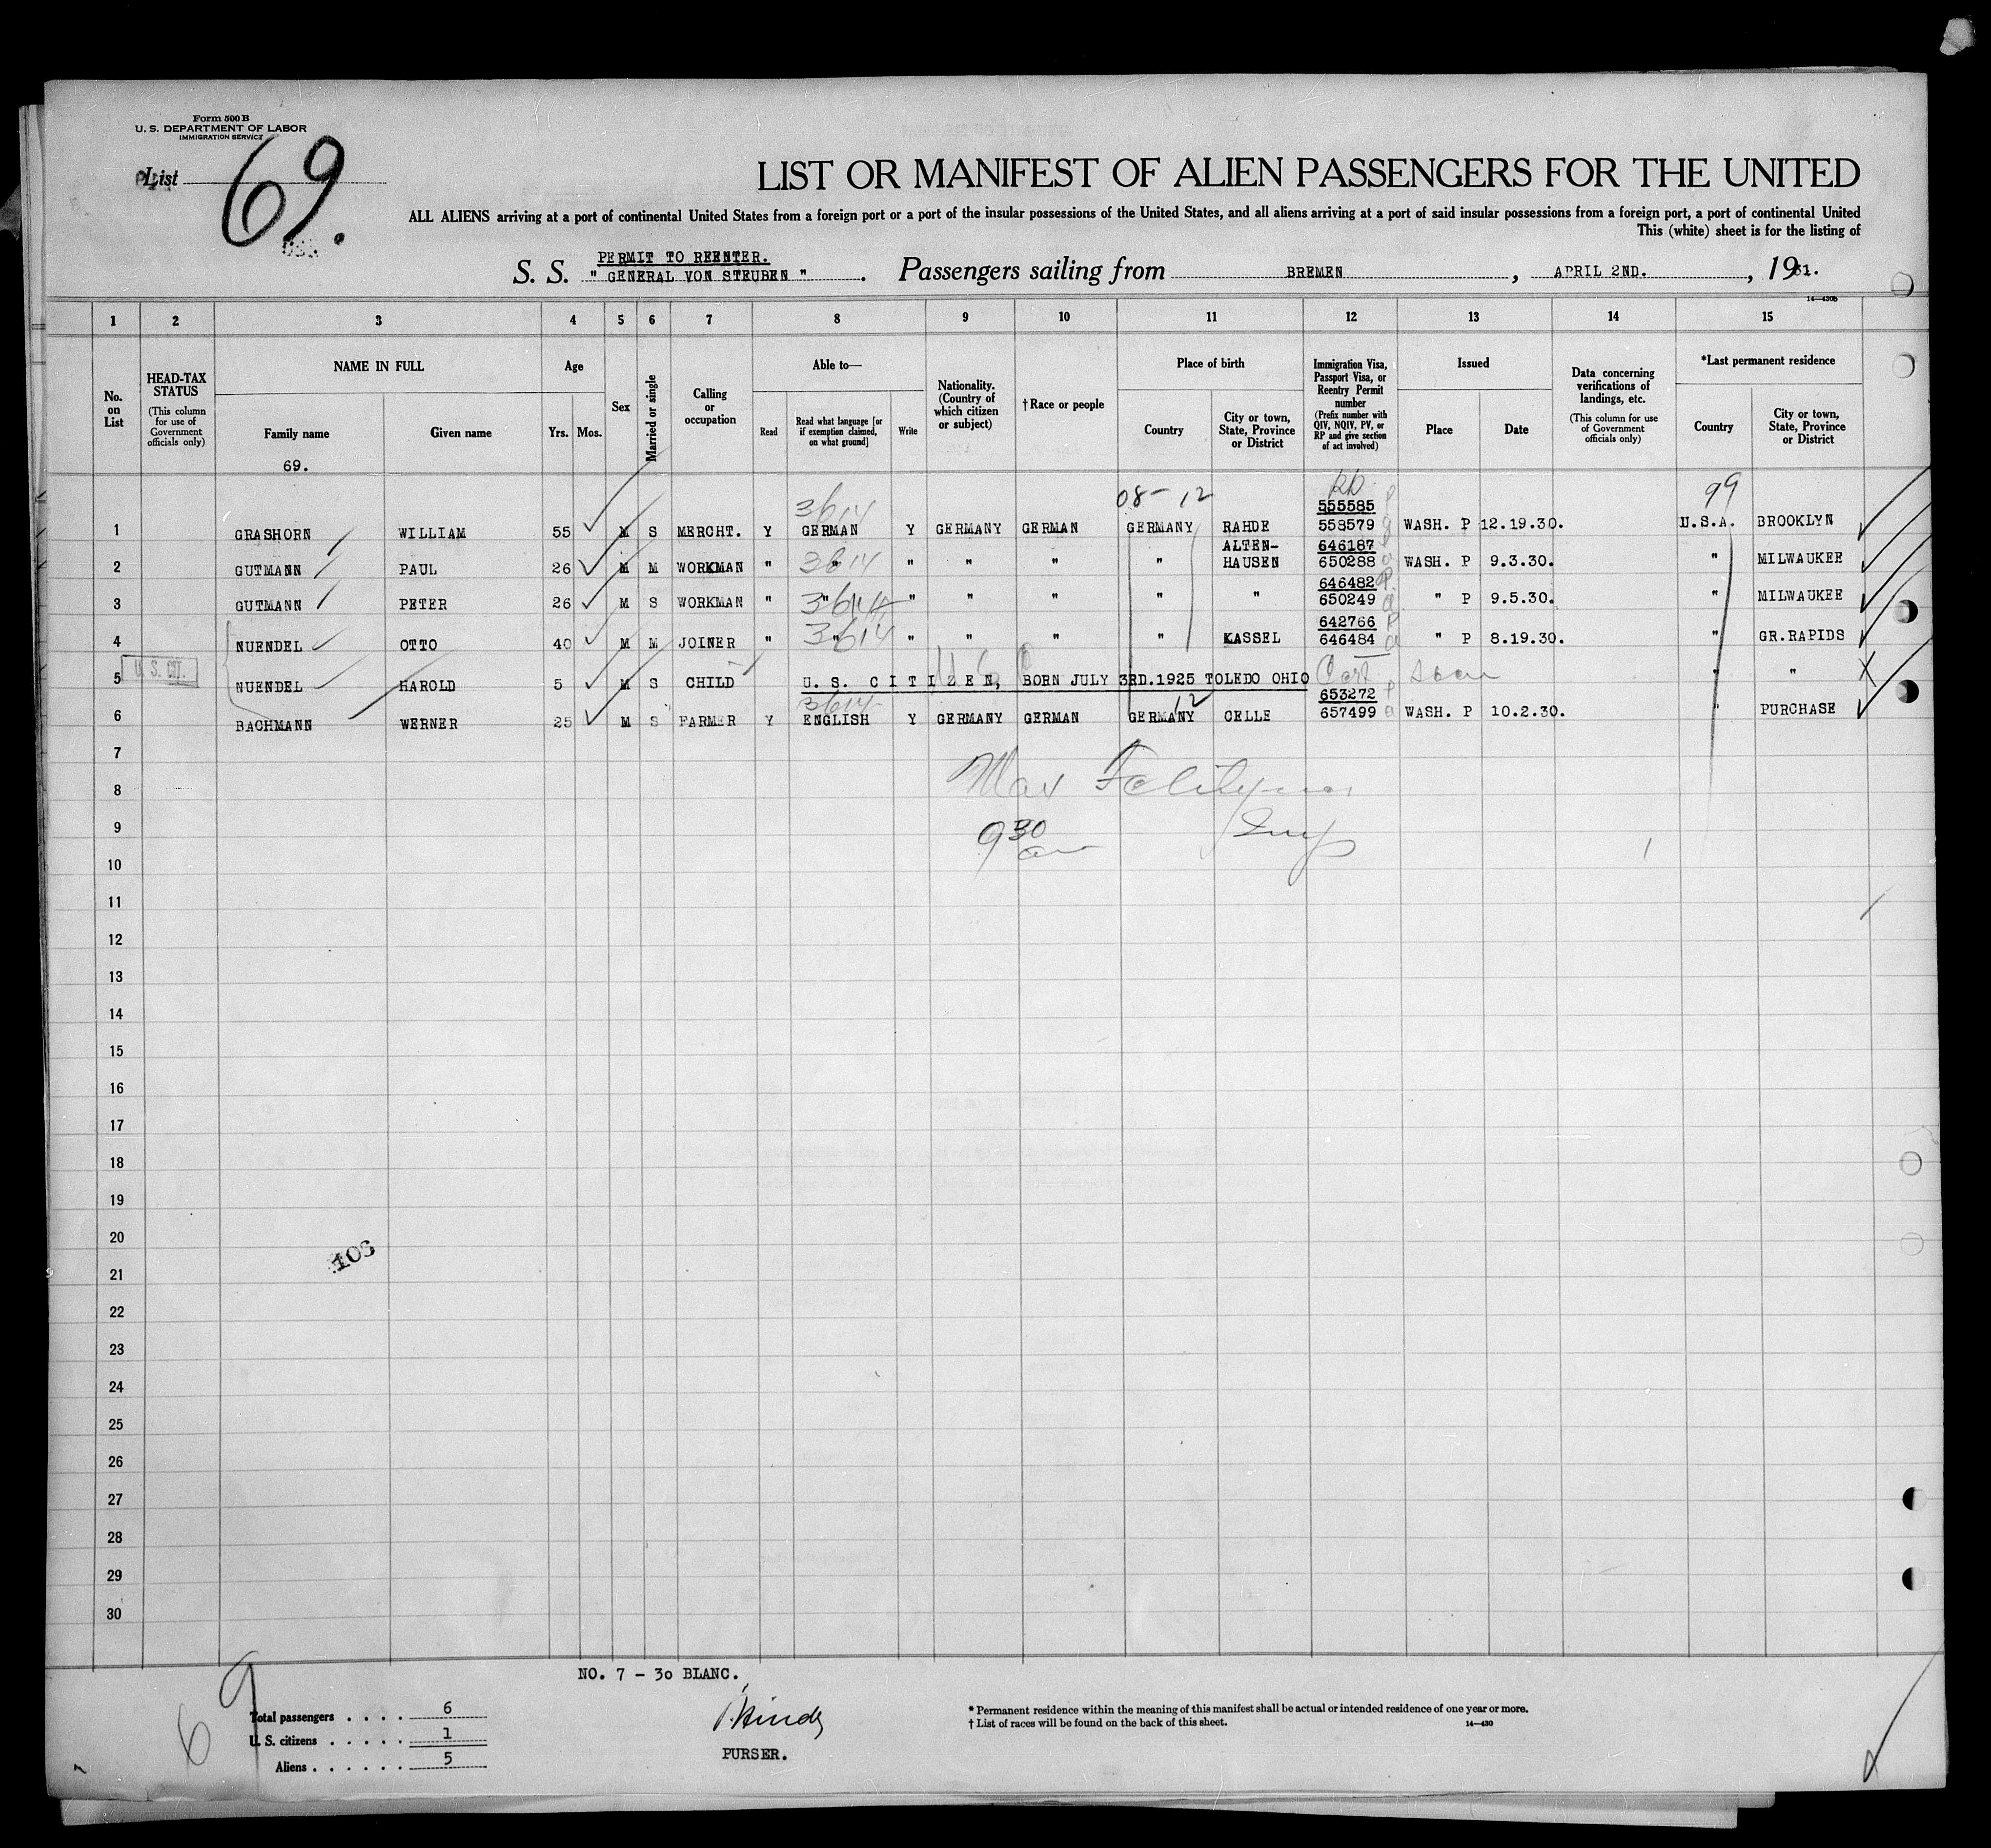 Form 500 B
U. S. DEPARTMENT OF LABOR
IMMIGRATION SERVICE
List 69.
LIST OR MANIFEST OF ALIEN PASSENGERS FOR THE UNITED
ALL ALIENS arriving at a port of continental United States from a foreign port or a port of the insular possessions of the United States, and all aliens arriving at a port of said insular possessions from a foreign port, a port of continental United
This (white) sheet is for the listing of
PERMIT TO REENTER.
S. S. " GENERAL VON STEUBEN ". Passengers sailing from BREMEN, APRIL 2ND., 1931.
14—430B
1 2 3 4 5 6 7 8 9 10 11 12 13 14 15
No. on List
HEAD-TAX STATUS (This column for use of Government officials only)
NAME IN FULL
Family name
Given name
69.
Age
Yrs. Mos.
Sex
Married or single
Calling or occupation
Able to—
Read
Read what language [or if exemption claimed, on what ground]
Write
Nationality. (Country of which citizen or subject)
†Race or people
Place of birth
Country
City or town, State, Province or District
Immigration Visa, Passport Visa, or Reentry Permit number (Prefix number with QIV, NQIV, PV, or RP and give section of act involved)
Issued
Place
Date
Data concerning verifications of landings, etc. (This column for use of Government officials only)
*Last permanent residence
Country
City or town, State, Province or District
3614 08-12 99
555585
1 GRASHORN WILLIAM 55 M S MERCHT. Y GERMAN Y GERMANY GERMAN GERMANY RAHDE 558579 WASH. P 12.19.30. U.S.A. BROOKLYN
ALTEN- 646187
2 GUTMANN PAUL 26 M M WORKMAN " " 3614 " " " " HAUSEN 650288 WASH. P 9.3.30. " MILWAUKEE
646482
3 GUTMANN PETER 26 M S WORKMAN " " " " " " " 650249 " P 9.5.30. " MILWAUKEE
642766
4 NUENDEL OTTO 40 M M JOINER " " 3614 " " " " KASSEL 646484 " P 8.19.30. " GR.RAPIDS
U. S. CIT.
5 NUENDEL HAROLD 5 M S CHILD U. S. CITIZEN, BORN JULY 3RD.1925 TOLEDO OHIO Cert seen " "
3614 12 653272
6 BACHMANN WERNER 25 M S FARMER Y ENGLISH Y GERMANY GERMAN GERMANY CELLE 657499 WASH. P 10.2.30. " PURCHASE
7
Max
8
9 9 30 am Insp
10
11
12
13
14
15
16
17
18
19
20
103
21
22
23
24
25
26
27
28
29
30
NO. 7 - 30 BLANC.
6 9
Total passengers . . . . 6
U. S. citizens . . . . . 1
Aliens . . . . . . 5
PURSER.
* Permanent residence within the meaning of this manifest shall be actual or intended residence of one year or more.
† List of races will be found on the back of this sheet.
14—430